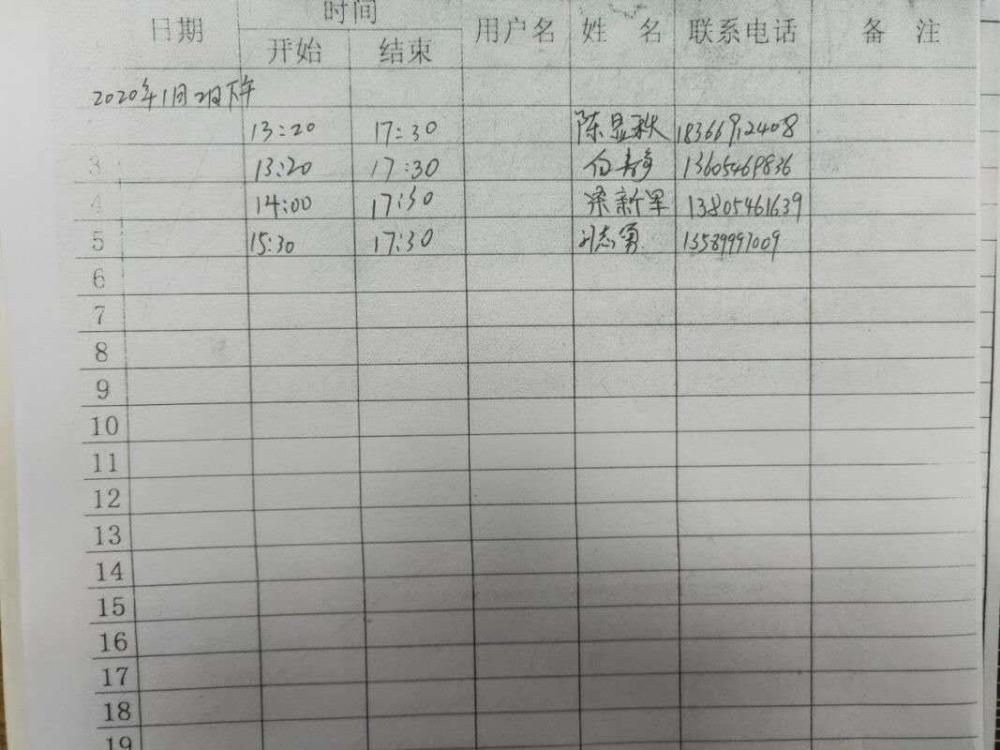 时间
日期 用户名 姓 名 联系电话 备 注
开始 结束
2020年1月2日下午
13:20 17:30 陈显秋 18366912408
3 13:20 17:30 白静 13605469836
4 14:00 17:30 梁新军 13805461639
5 15:30 17:30 刘志勇 13589997009
6
7
8
9
10
11
12
13
14
15
16
17
18
19